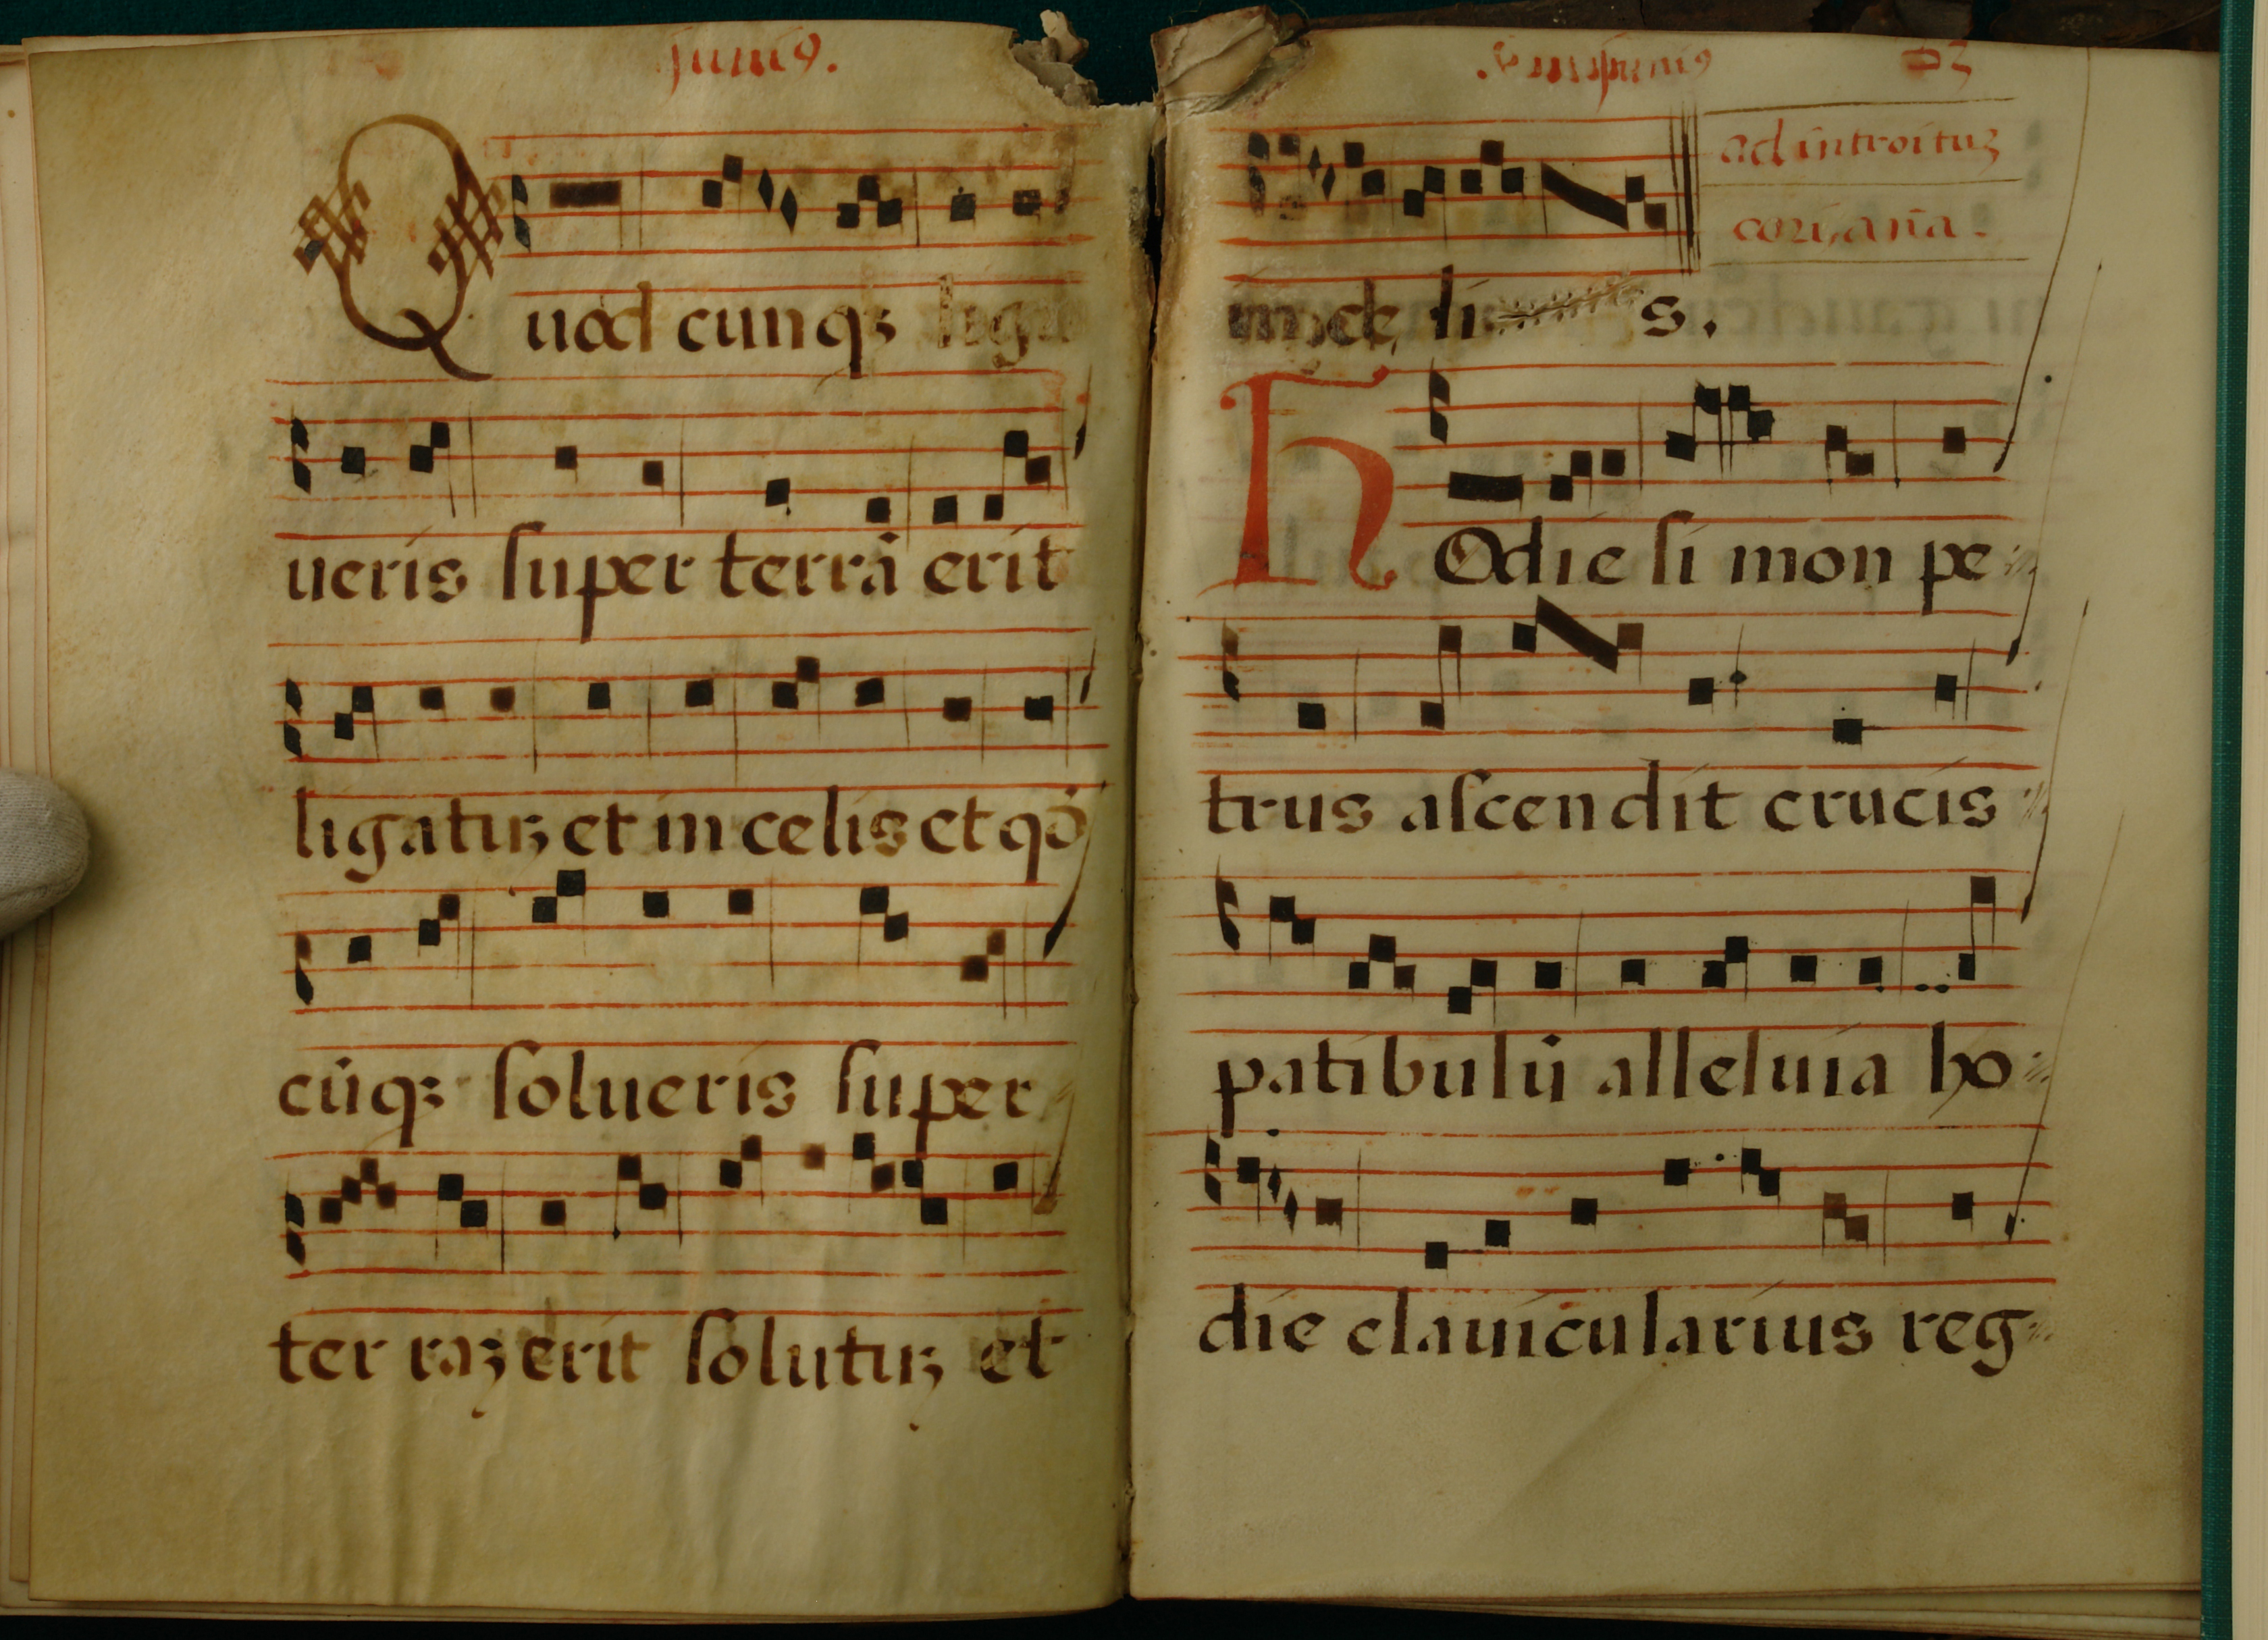 Juniꝯ.
Quod cunqꝫ ligա
ueris super terrā erit
ligatur et in celis et qd̓
cūqꝫ solueris super
ter raʒ erit solutur et
ad introituʒ
in ce li s.
chori, an̄a.
hOdie si mon pe
trus ascendit crucis
patibulū alleluia ho
die clauicularius reg